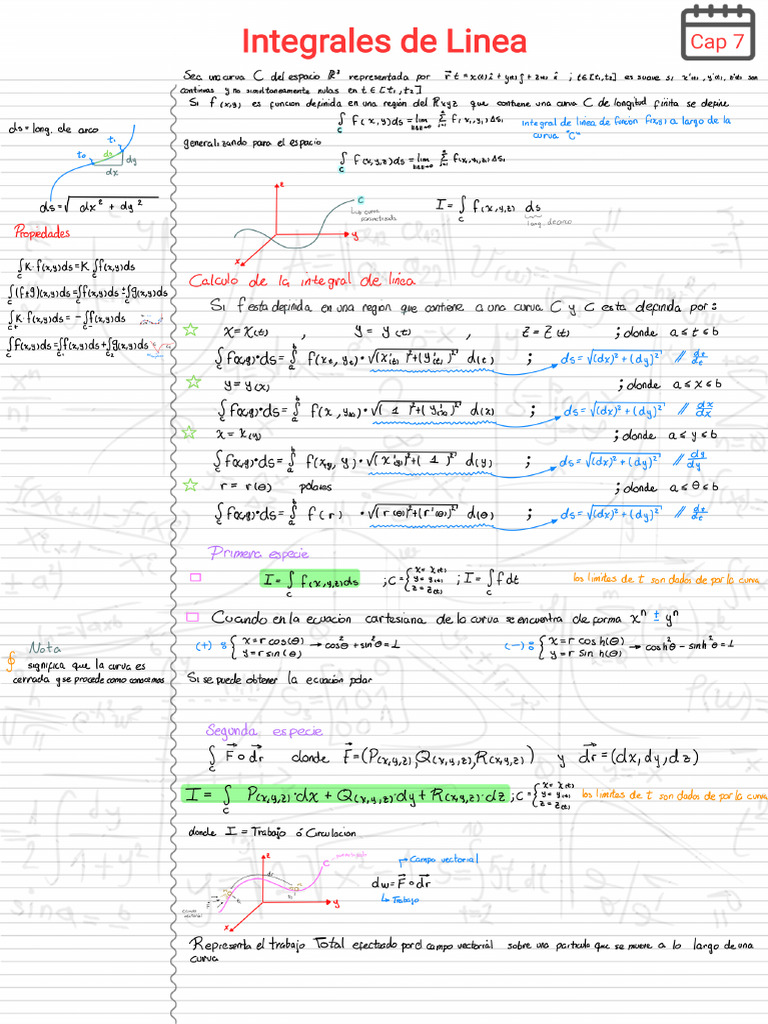 Integrales de Linea
Cap 7
Sea una curva C del espacio R³ representada por r t = x(t) i + y(t) j + z(t) k ; t∈[t₁,t₂] es suave si x'(t), y'(t), z'(t) son
continuas y no simultaneamente nulas en t∈[t₁,t₂]
Si f(x,y) es funcion definida en una región del Rxyz que contiene una curva C de longitud finita se define
∫ f(x,y)ds = lim Σ f(xᵢ,yᵢ)ΔSᵢ
C
integral de linea de funcion f(x,y) a largo de la
curva "C"
generalizando para el espacio
∫ f(x,y,z)ds = lim Σ f(xᵢ,yᵢ,zᵢ)ΔSᵢ
C
z
C
y
x
I = ∫ f(x,y,z) ds
C
long. de arco
ds = long. de arco
t₁
t₀
ds
dy
dx
ds = √dx² + dy²
Propiedades
∫ K·f(x,y)ds = K∫f(x,y)ds
∫(f±g)(x,y)ds = ∫f(x,y)ds ± ∫g(x,y)ds
∫ K·f(x,y)ds = -∫f(x,y)ds
∫f(x,y)ds = ∫f(x,y)ds + ∫g(x,y)ds
Calculo de la integral de linea
Si f esta definida en una region que contiene a una curva C y C esta definida por :
x = x(t) , y = y(t) , z = z(t) ; donde a ≤ t ≤ b
∫ f(x,y)·ds = ∫ f(xt, yt)·√(x'(t))²+(y'(t))² d(t) ; ds = √(dx)²+(dy)² // dt/dt
y = y(x) ; donde a ≤ x ≤ b
∫ f(x,y)·ds = ∫ f(x, y(x))·√(1)²+(y'(x))² d(x) ; ds = √(dx)²+(dy)² // dx/dx
x = x(y) ; donde a ≤ y ≤ b
∫ f(x,y)·ds = ∫ f(x(y), y)·√(x'(y))²+(1)² d(y) ; ds = √(dx)²+(dy)² // dy/dy
r = r(θ) polares ; donde a ≤ θ ≤ b
∫ f(x,y)·ds = ∫ f(r) ·√(r(θ))²+(r'(θ))² d(θ) ; ds = √(dx)²+(dy)² // dt/dt
Primera especie
I = ∫ f(x,y,z)ds ; C = { x = x(t) y = y(t) z = z(t) ; I = ∫ f dt los limites de t son dados de por la curva
C
Cuando en la ecuación cartesiana de la curva se encuentra de forma xⁿ ± yⁿ
(+) : { x = r cos(θ) y = r sin(θ) → cos²θ + sin²θ = 1
(−) : { x = r cosh(θ) y = r sinh(θ) → cosh²θ − sinh²θ = 1
Nota
∮ significa que la curva es
cerrada y se procede como conocemos
Si se puede obtener la ecuación polar
Segunda especie
∫ F∘dr donde F = (P(x,y,z), Q(x,y,z), R(x,y,z)) y dr = (dx, dy, dz)
C
I = ∫ P(x,y,z)·dx + Q(x,y,z)·dy + R(x,y,z)·dz ; C = { x = x(t) y = y(t) z = z(t) los limites de t son dados de por la curva
C
donde I = Trabajo ó Circulacion
z
C
dr
y
x
Campo vectorial
dw = F∘dr
Trabajo
Representa el trabajo Total efectuado por el campo vectorial sobre una particula que se mueve a lo largo de una
curva